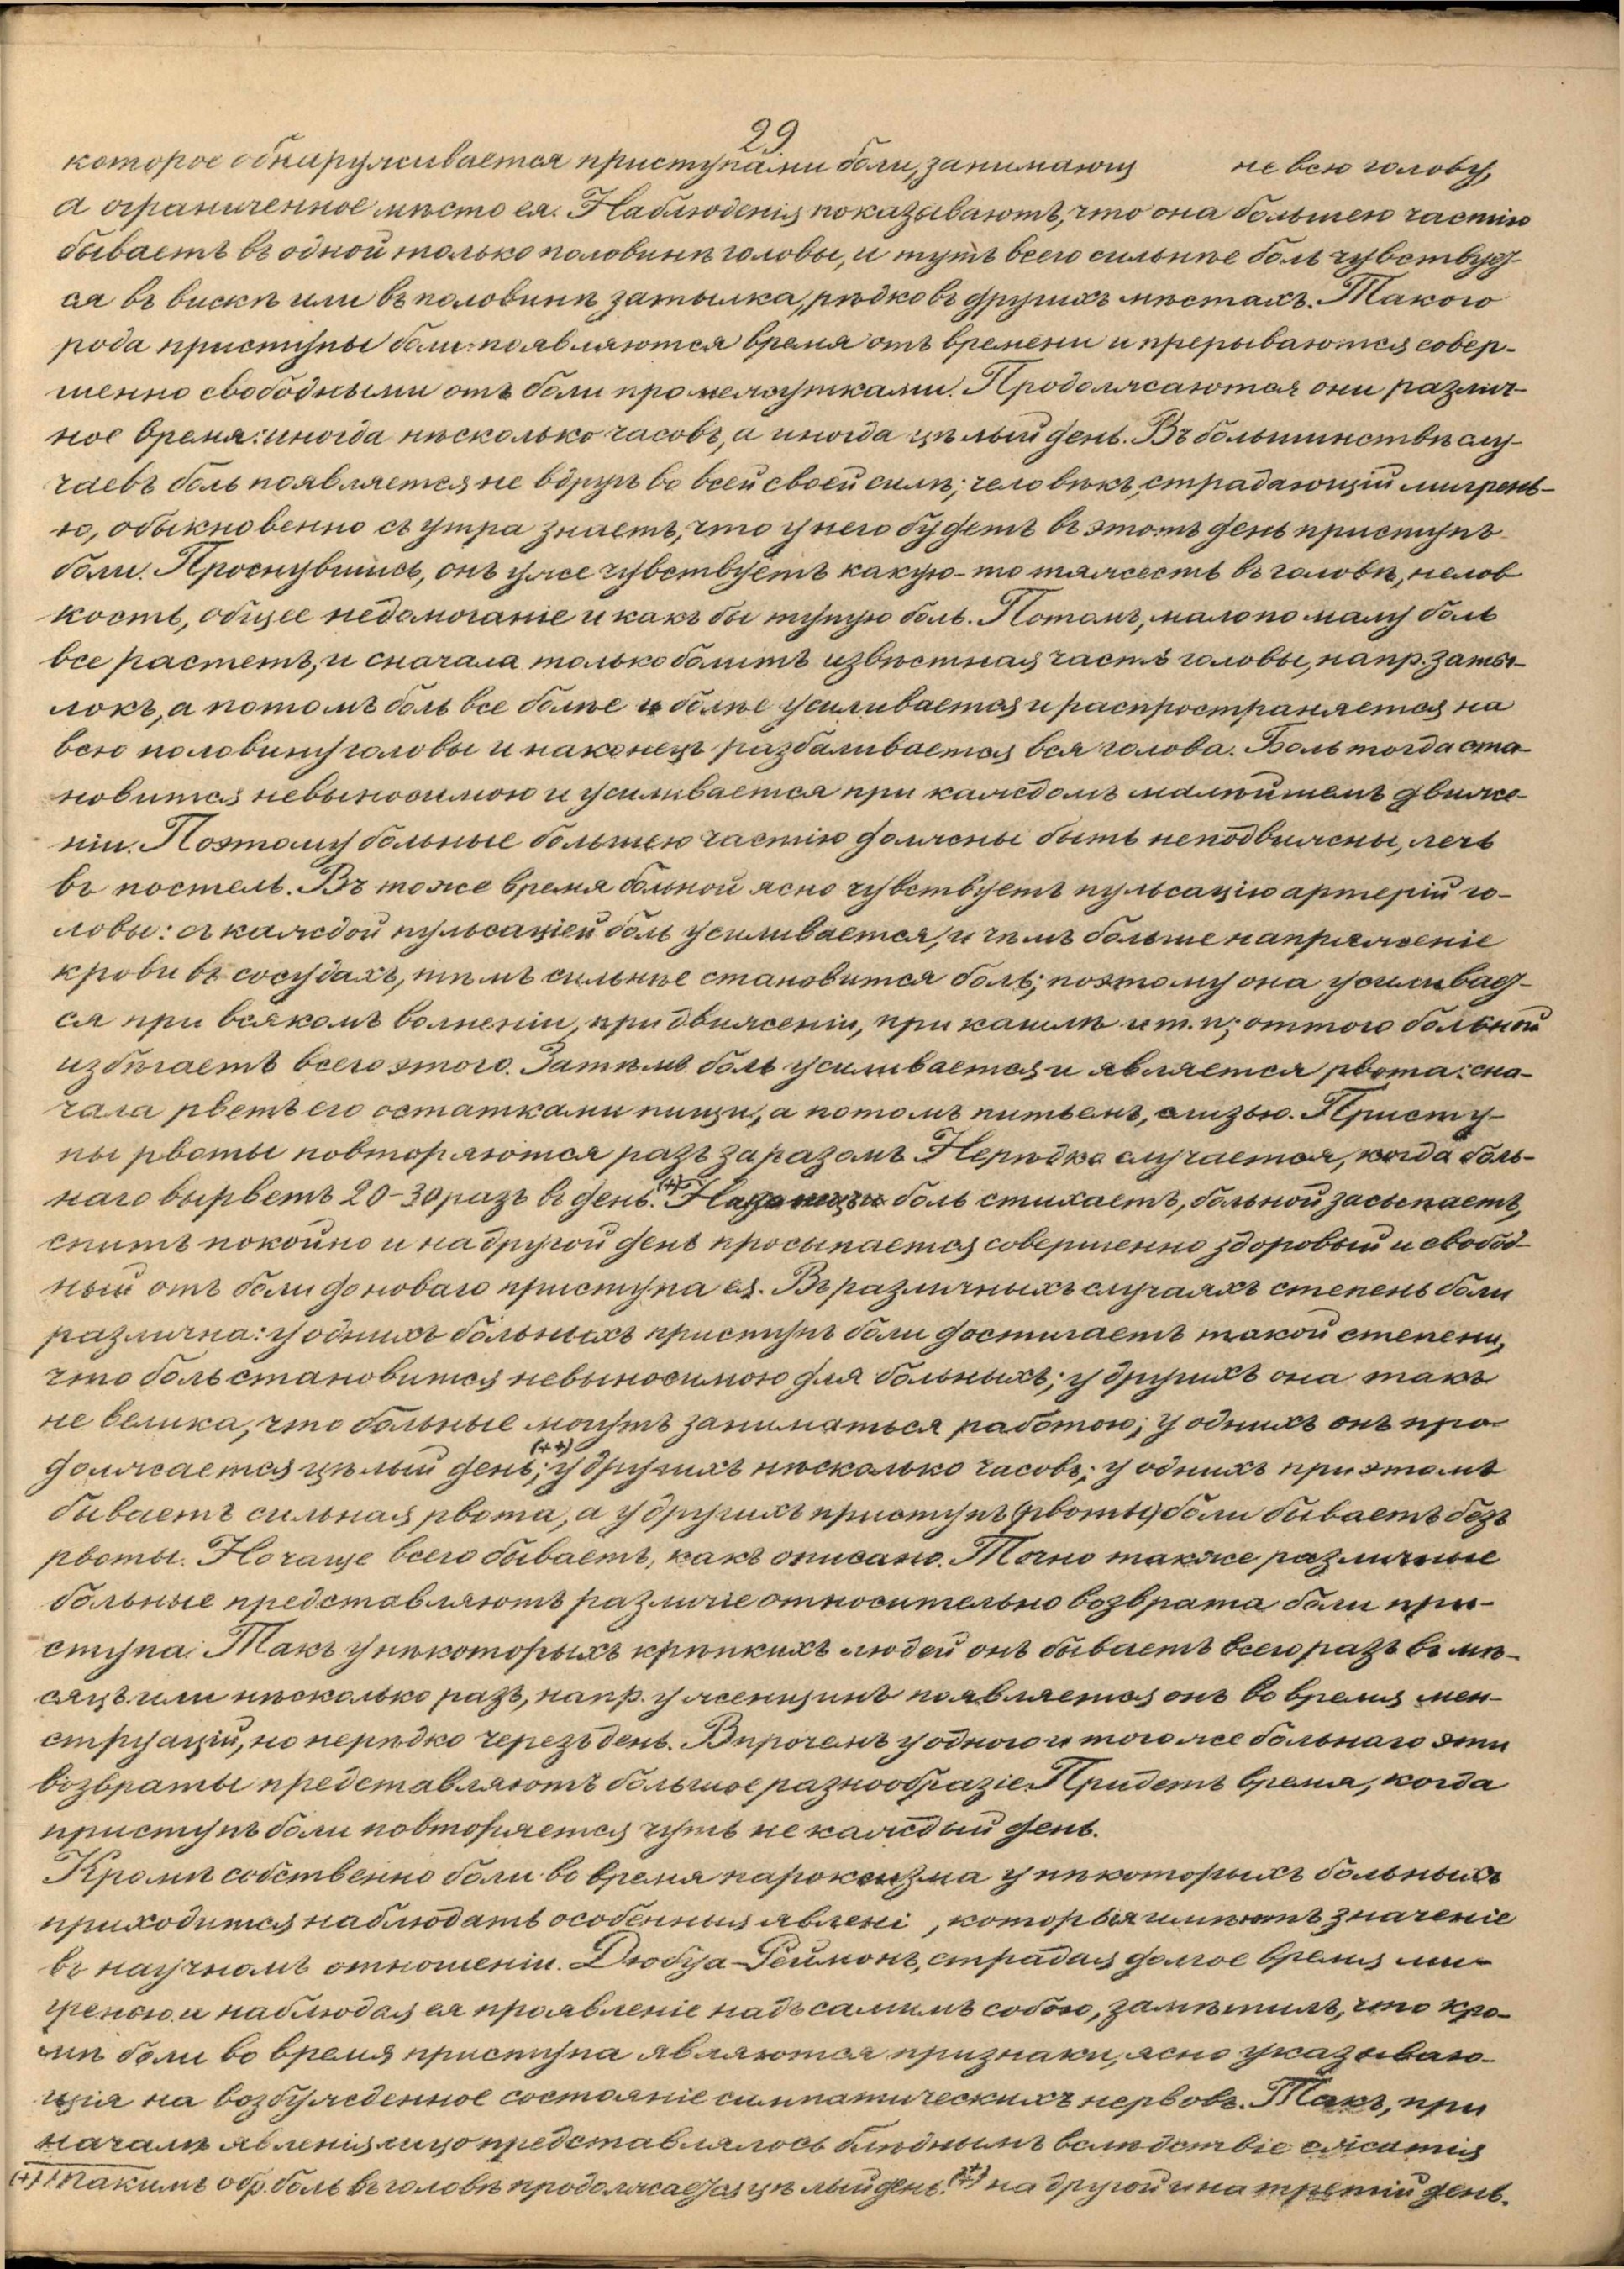 29
которое обнаруживается приступами боли, занимающ не всю голову,
а ограниченное мѣсто ея. Наблюденія показываютъ, что она большею частію
бываетъ въ одной только половинѣ головы, и тутъ всего сильнѣе боль чувствует-
ся въ вискѣ или въ половинѣ затылка, рѣдко въ другихъ мѣстахъ. Такого
рода приступы боли появляются время отъ времени и прерываются совер-
шенно свободными отъ боли промежутками. Продолжаются они различ-
ное время: иногда нѣсколько часовъ, а иногда цѣлый день. Въ большинствѣ слу-
чаевъ боль появляется не вдругъ во всей своей силѣ; человѣкъ, страдающій мигрень-
ю, обыкновенно съ утра знаетъ, что у него будетъ въ этотъ день приступъ
боли. Проснувшись, онъ уже чувствуетъ какую-то тяжесть въ головѣ, нелов
кость, общее недомоганіе и какъ бы тупую боль. Потомъ, мало по малу боль
все растетъ, и сначала только болитъ извѣстная часть головы, напр. заты-
локъ, а потомъ боль все болѣе и болѣе усиливается и распространяется на
всю половину головы и наконецъ разбаливается вся голова. Боль тогда ста-
новится невыносимою и усиливается при каждомъ малѣйшемъ движе-
ніи. Поэтому больные большею частію должны быть неподвижны, лечь
въ постель. Въ тоже время больной ясно чувствуетъ пульсацію артерій го-
ловы: съ каждой пульсаціей боль усиливается, и чѣмъ больше напряженіе
крови въ сосудахъ, тѣмъ сильнѣе становится боль; поэтому она усиливает-
ся при всякомъ волненіи, при движеніи, при кашлѣ и т. п; оттого больной
избѣгаетъ всего этого. Затѣмъ боль усиливается и является рвота: сна-
чала рветъ его остатками пищи, а потомъ питьемъ, слизью. Присту-
пы рвоты повторяются разъ за разомъ Нерѣдко случается, когда боль-
наго вырветъ 20-30 разъ въ день. (+) Наконецъ боль стихаетъ, больной засыпаетъ,
спитъ покойно и на другой день просыпается совершенно здоровый и свобод-
ный отъ боли до новаго приступа ея. Въ различныхъ случаяхъ степень боли
различна: у однихъ больныхъ приступъ боли достигаетъ такой степени,
что боль становится невыносимою для больныхъ; у другихъ она такъ
не велика, что больные могутъ заниматься работою; у однихъ онъ про-
должается цѣлый день; (++) у другихъ нѣсколько часовъ; у однихъ при этомъ
бываетъ сильная рвота, а у другихъ приступъ (рвоты) боли бываетъ безъ
рвоты. Но чаще всего бываетъ, какъ описано. Точно также различные
больные представляютъ различіе относительно возврата боли при-
ступа. Такъ у нѣкоторыхъ крѣпкихъ людей онъ бываетъ всего разъ въ мѣ-
сяцъ или нѣсколько разъ, напр. у женщинъ появляется онъ во время мен-
струацій, но нерѣдко черезъ день. Впрочемъ у одного и того же больнаго эти
возвраты представляютъ большое разнообразіе. Придетъ время, когда
приступъ боли повторяется чуть не каждый день.
Кромѣ собственно боли во время пароксизма у нѣкоторыхъ больныхъ
приходится наблюдать особенныя явлені , которыя имѣютъ значеніе
въ научномъ отношеніи. Дюбуа-Реймонъ, страдая долгое время ми-
гренью и наблюдая ея проявленіе надъ самимъ собою, замѣтилъ, что кро-
мѣ боли во время приступа являются признаки, ясно указываю-
щія на возбужденное состояніе симпатическихъ нервовъ. Такъ, при
началѣ явленія лицо представлялось блѣднымъ вслѣдствіе сжатія
(+) Такимъ обр. боль въ головѣ продолжается цѣлый день. (++) на другой и на третій день.